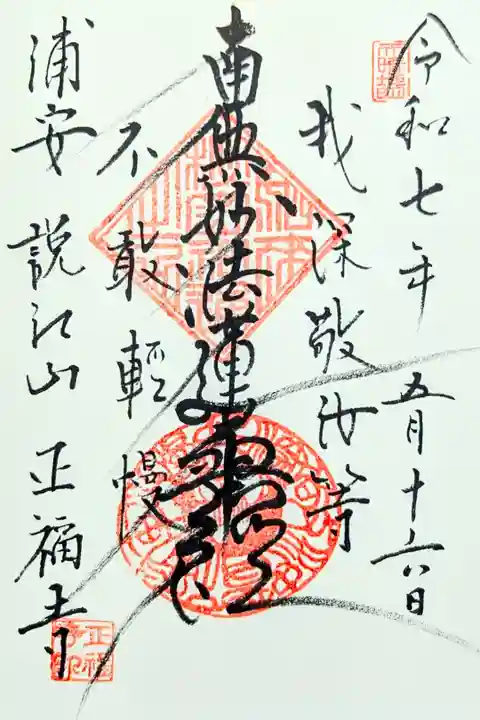 令和七年五月十六日
我深敬汝等
南無妙法蓮華経
不敢軽慢
浦安 説江山 正福寺